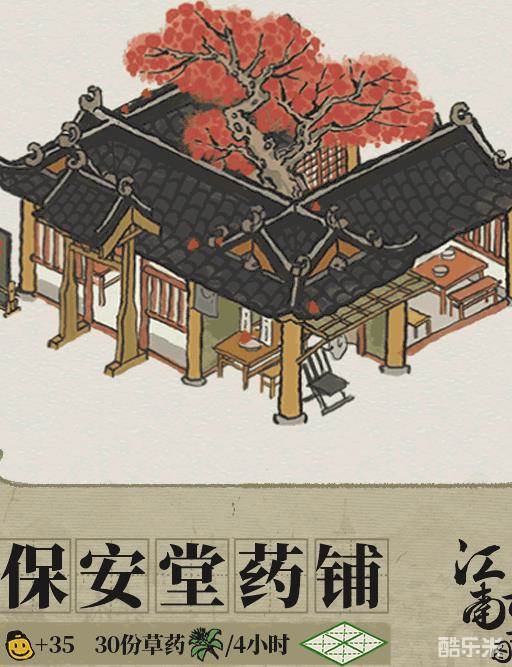 保安堂药铺
+35 30份草药/4小时
江南
酷乐米